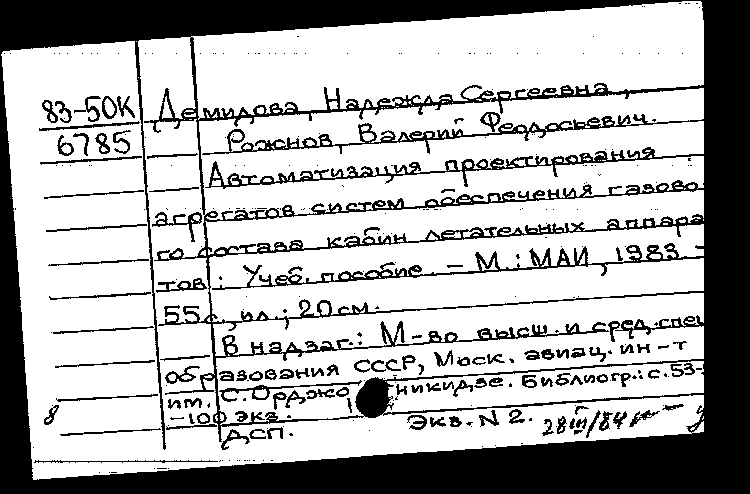 83-50К Демидова, Надежда Сергеевна,
6785 Рожнов, Валерий Феодосьевич.
Автоматизация проектирования
агрегатов систем обеспечения газово
го состава кабин летательных аппара
тов : Учеб. пособие. – М. : МАИ, 1983 -
55с., ил.; 20см.
В надзаг.: М-во высш. и сред. спец
образования СССР, Моск. авиац. ин-т
им. С. Орджоникидзе. Библиогр.: с. 53-
8 -100 экз.
ДСП. Экз. N 2. 28III/84